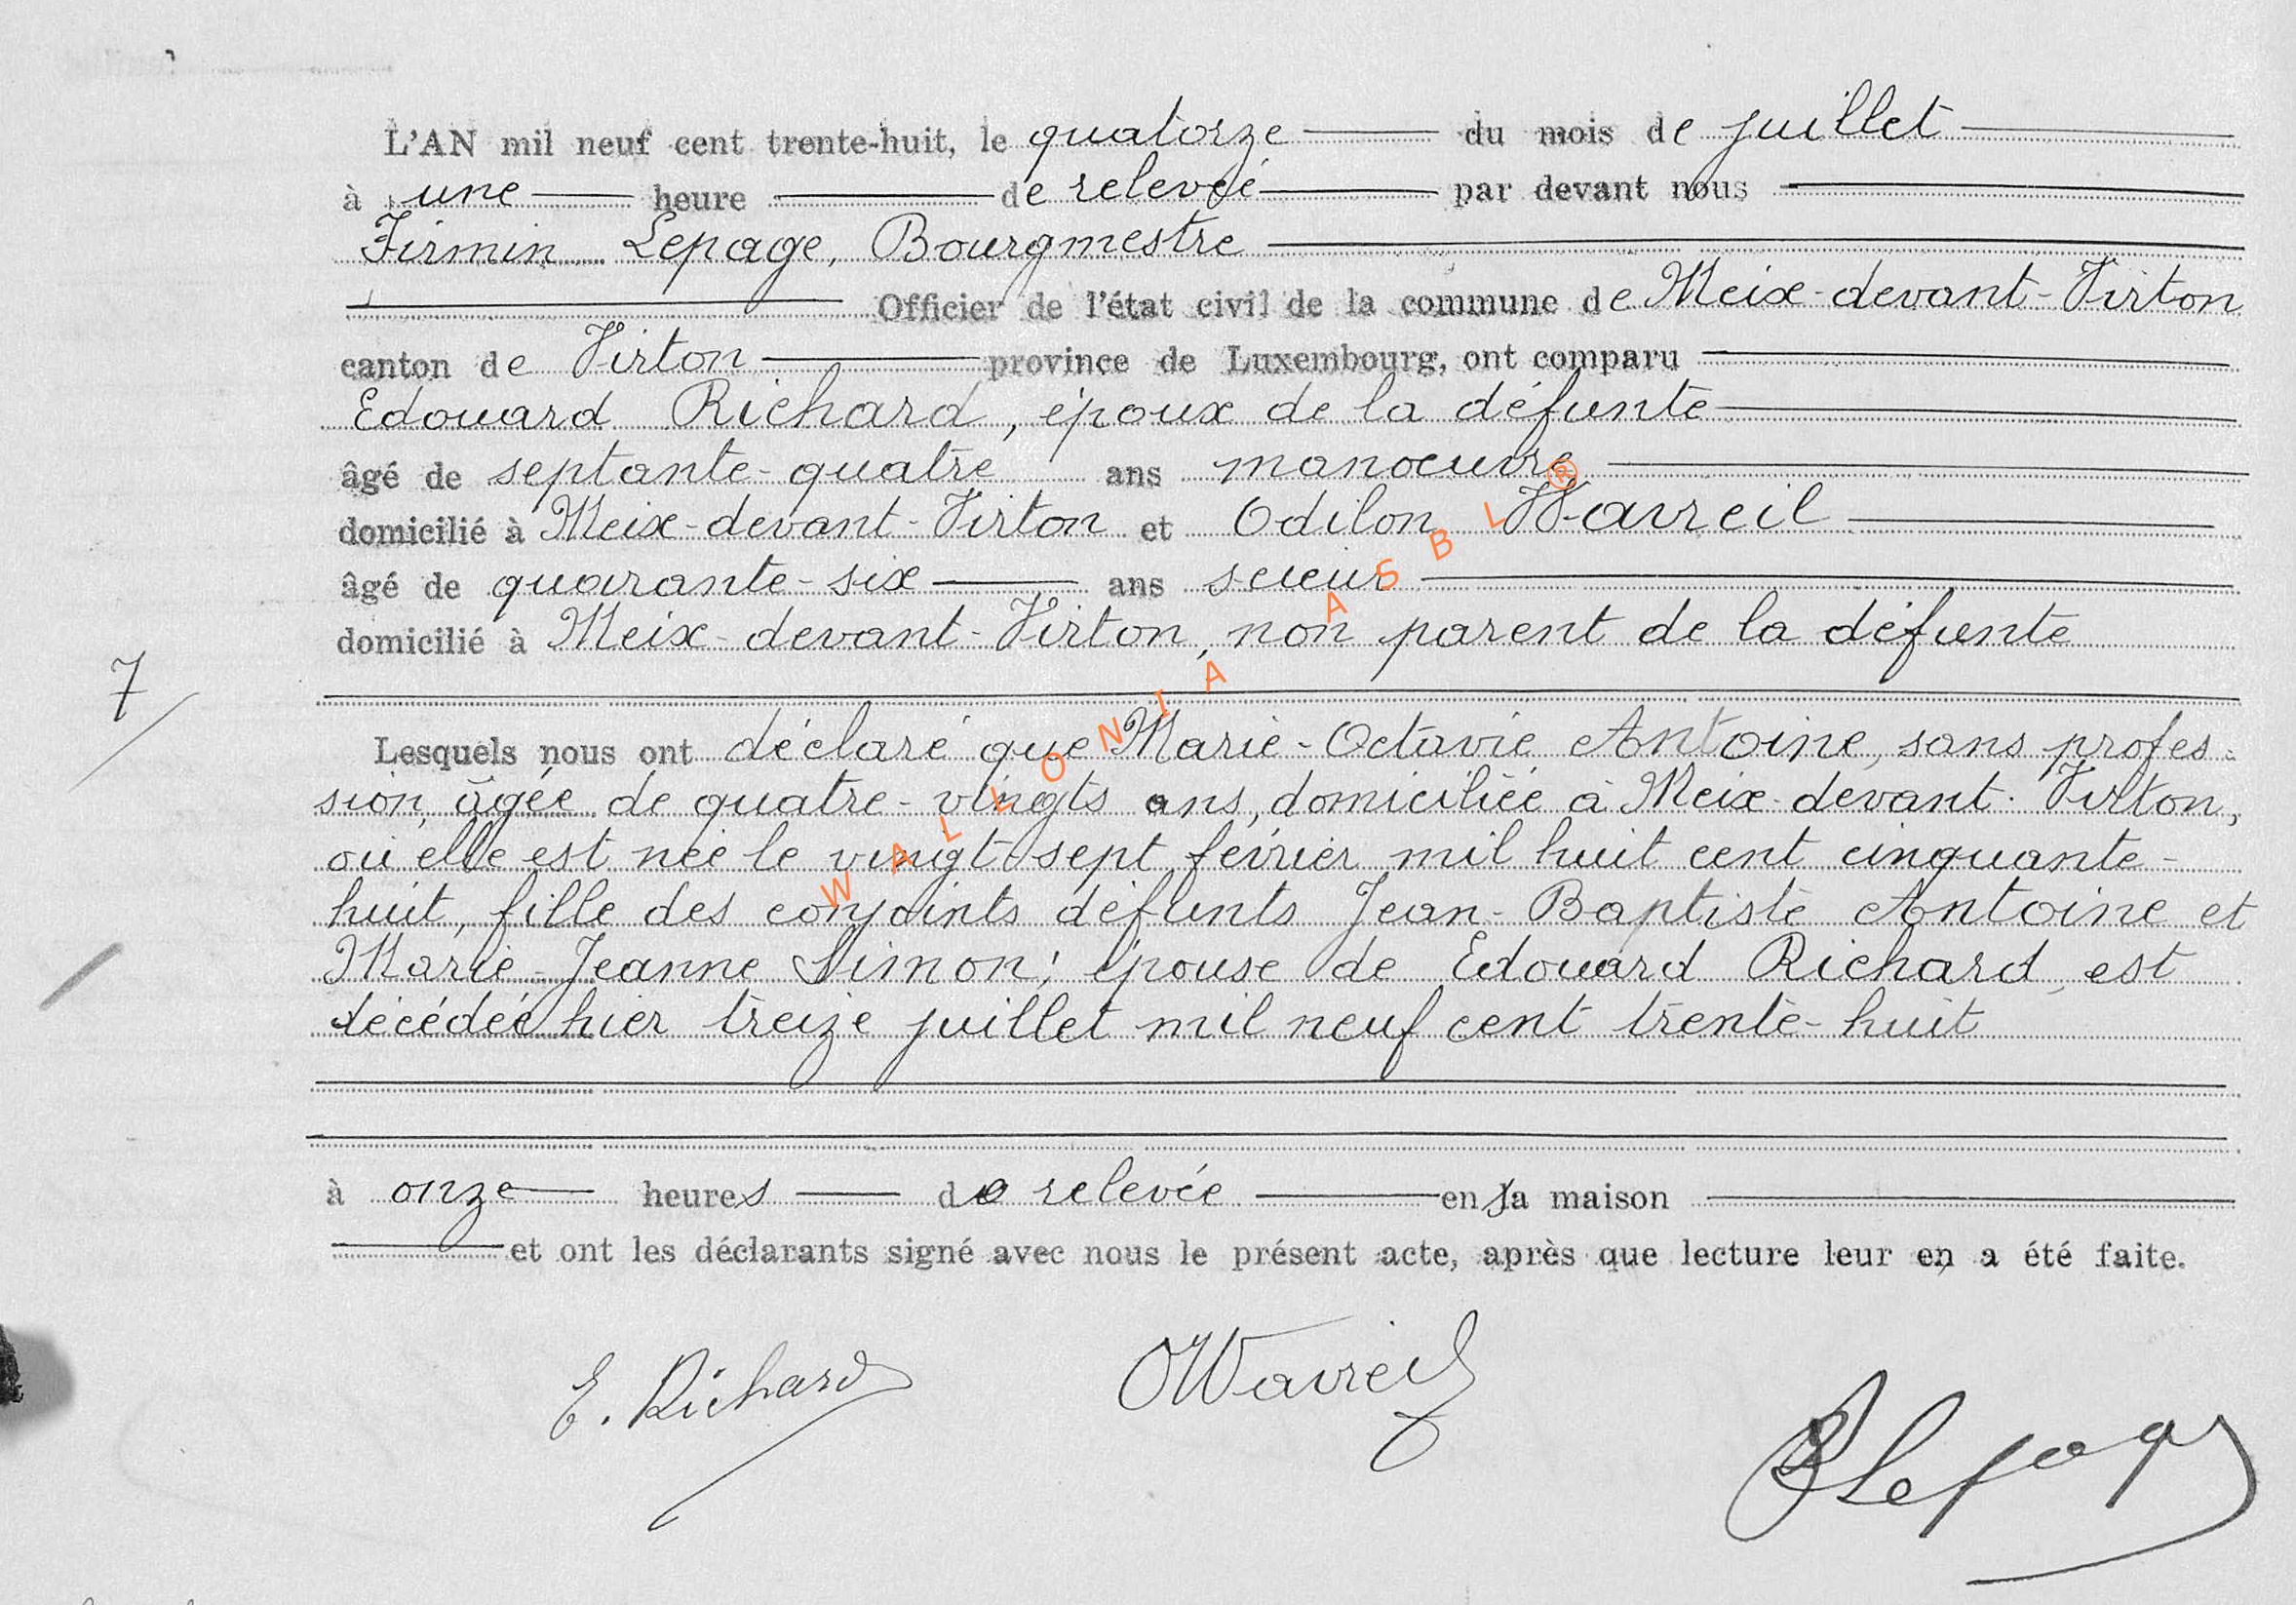 L'AN mil neuf cent trente-huit, le quatorze du mois de juillet
à une heure de relevée par devant nous
Firmin Lepage, Bourgmestre
Officier de l'état civil de la commune de Meix-devant-Virton
canton de Virton province de Luxembourg, ont comparu
Edouard Richard, époux de la défunte
âgé de septante-quatre ans manoeuvre
domicilié à Meix-devant-Virton et Odilon Wavreil
âgé de quarante-six ans scieur
domicilié à Meix-devant-Virton, non parent de la défunte
7
Lesquels nous ont déclaré que Marie-Octavie Antoine, sans profes-
sion, âgée de quatre-vingts ans, domiciliée à Meix-devant-Virton,
où elle est née le vingt-sept février mil huit cent cinquante-
huit, fille des conjoints défunts Jean-Baptiste Antoine et
Marie-Jeanne Simon; épouse de Edouard Richard, est
décédée hier treize juillet mil neuf cent trente-huit
à onze heures de relevée en sa maison
et ont les déclarants signé avec nous le présent acte, après que lecture leur en a été faite.
E. Richard OWavreil
Lepage
WALLONIA ASBL ®